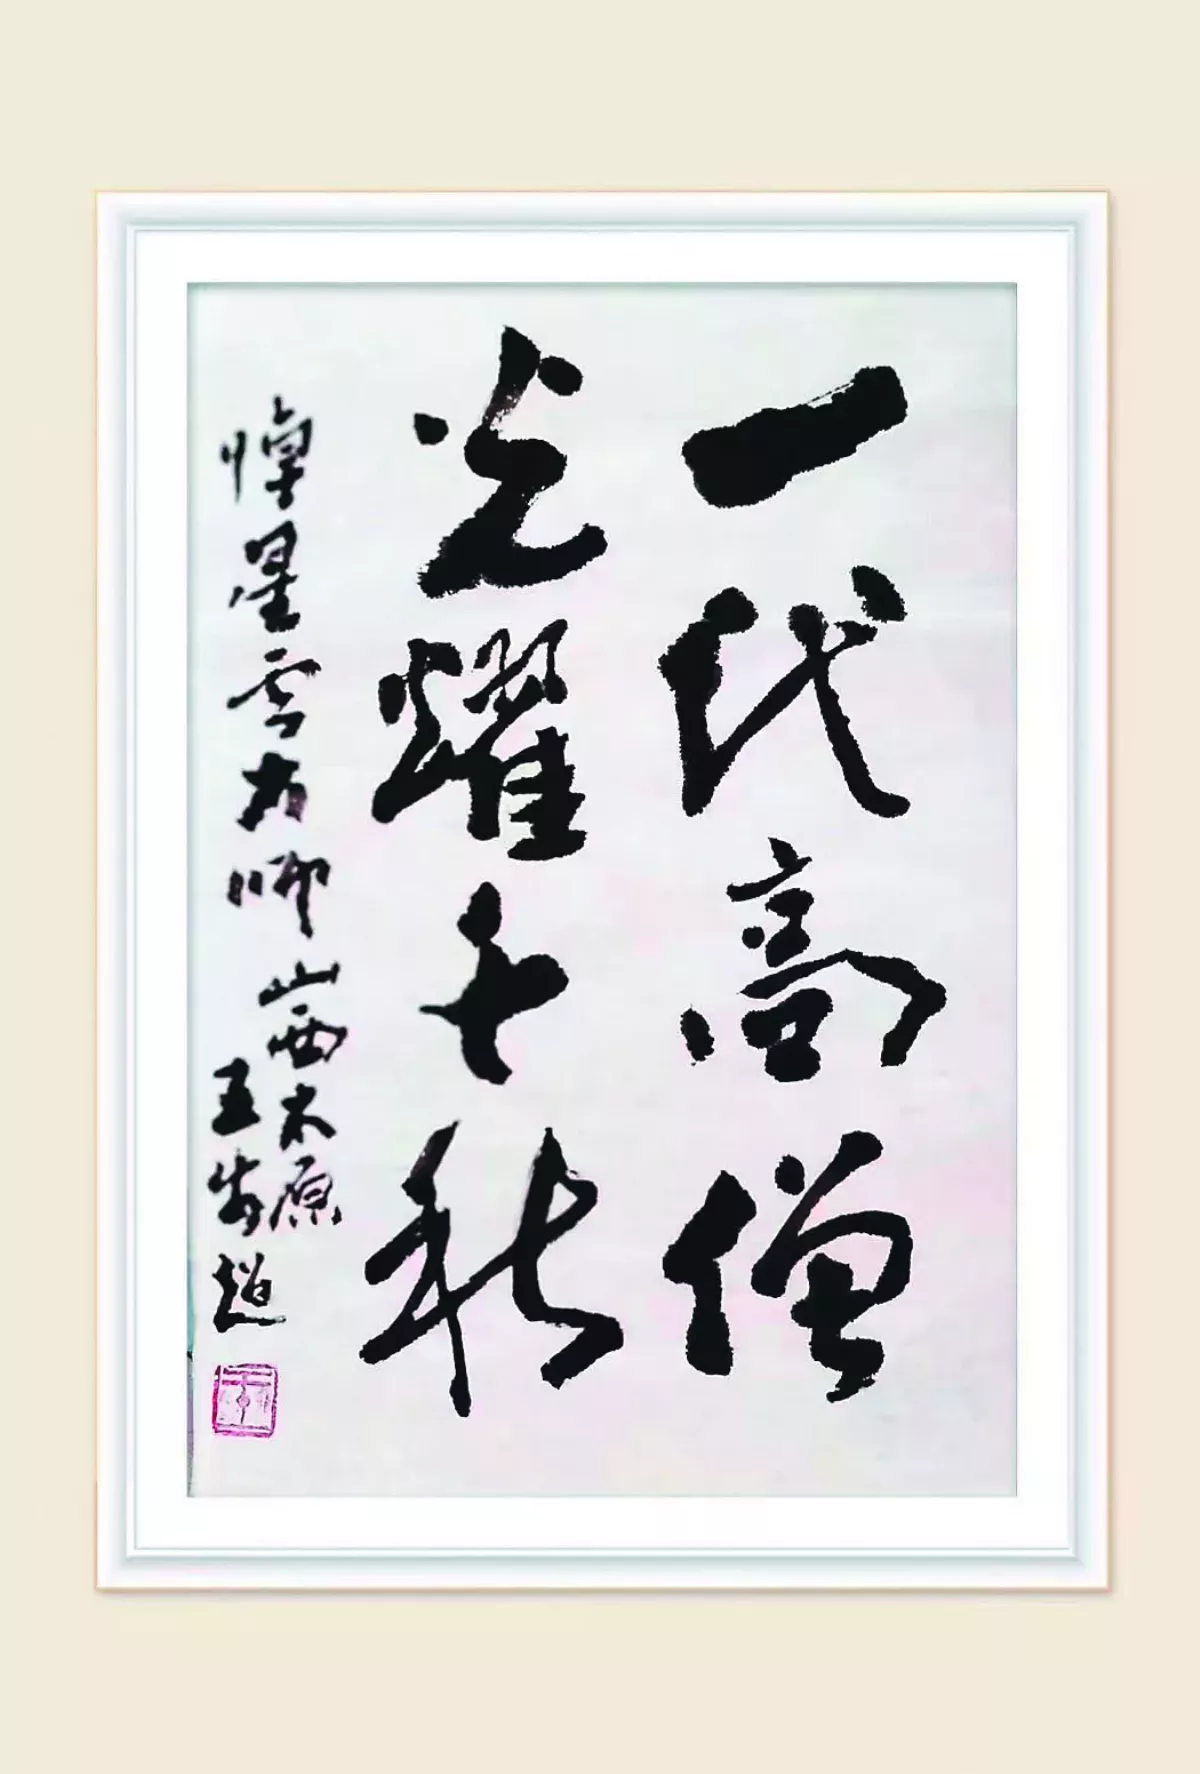 一代高僧
光耀千秋
悼星云大师
山西太原
王